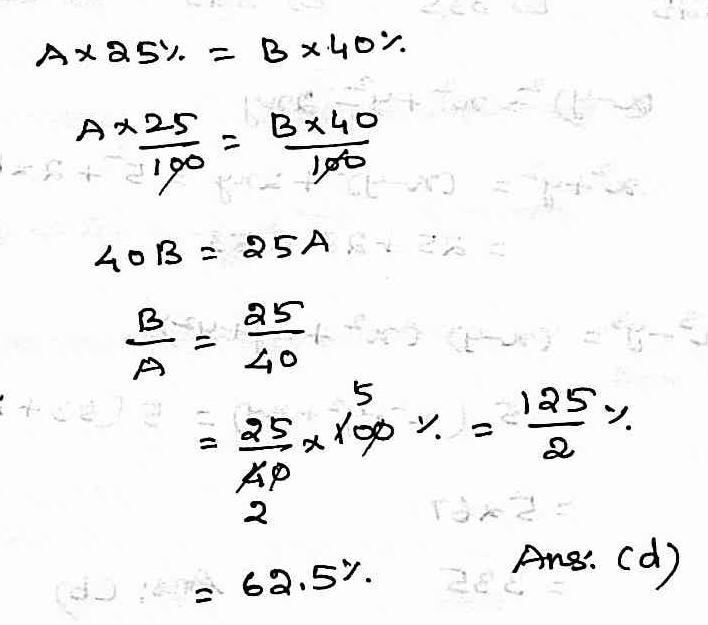 A x 25% = B x 40%
A x 25/100 = B x 40/100
40B = 25A
B/A = 25/40
= 25/40 x 100 % = 125/2 %
5
2
= 62.5%. Ans: (d)